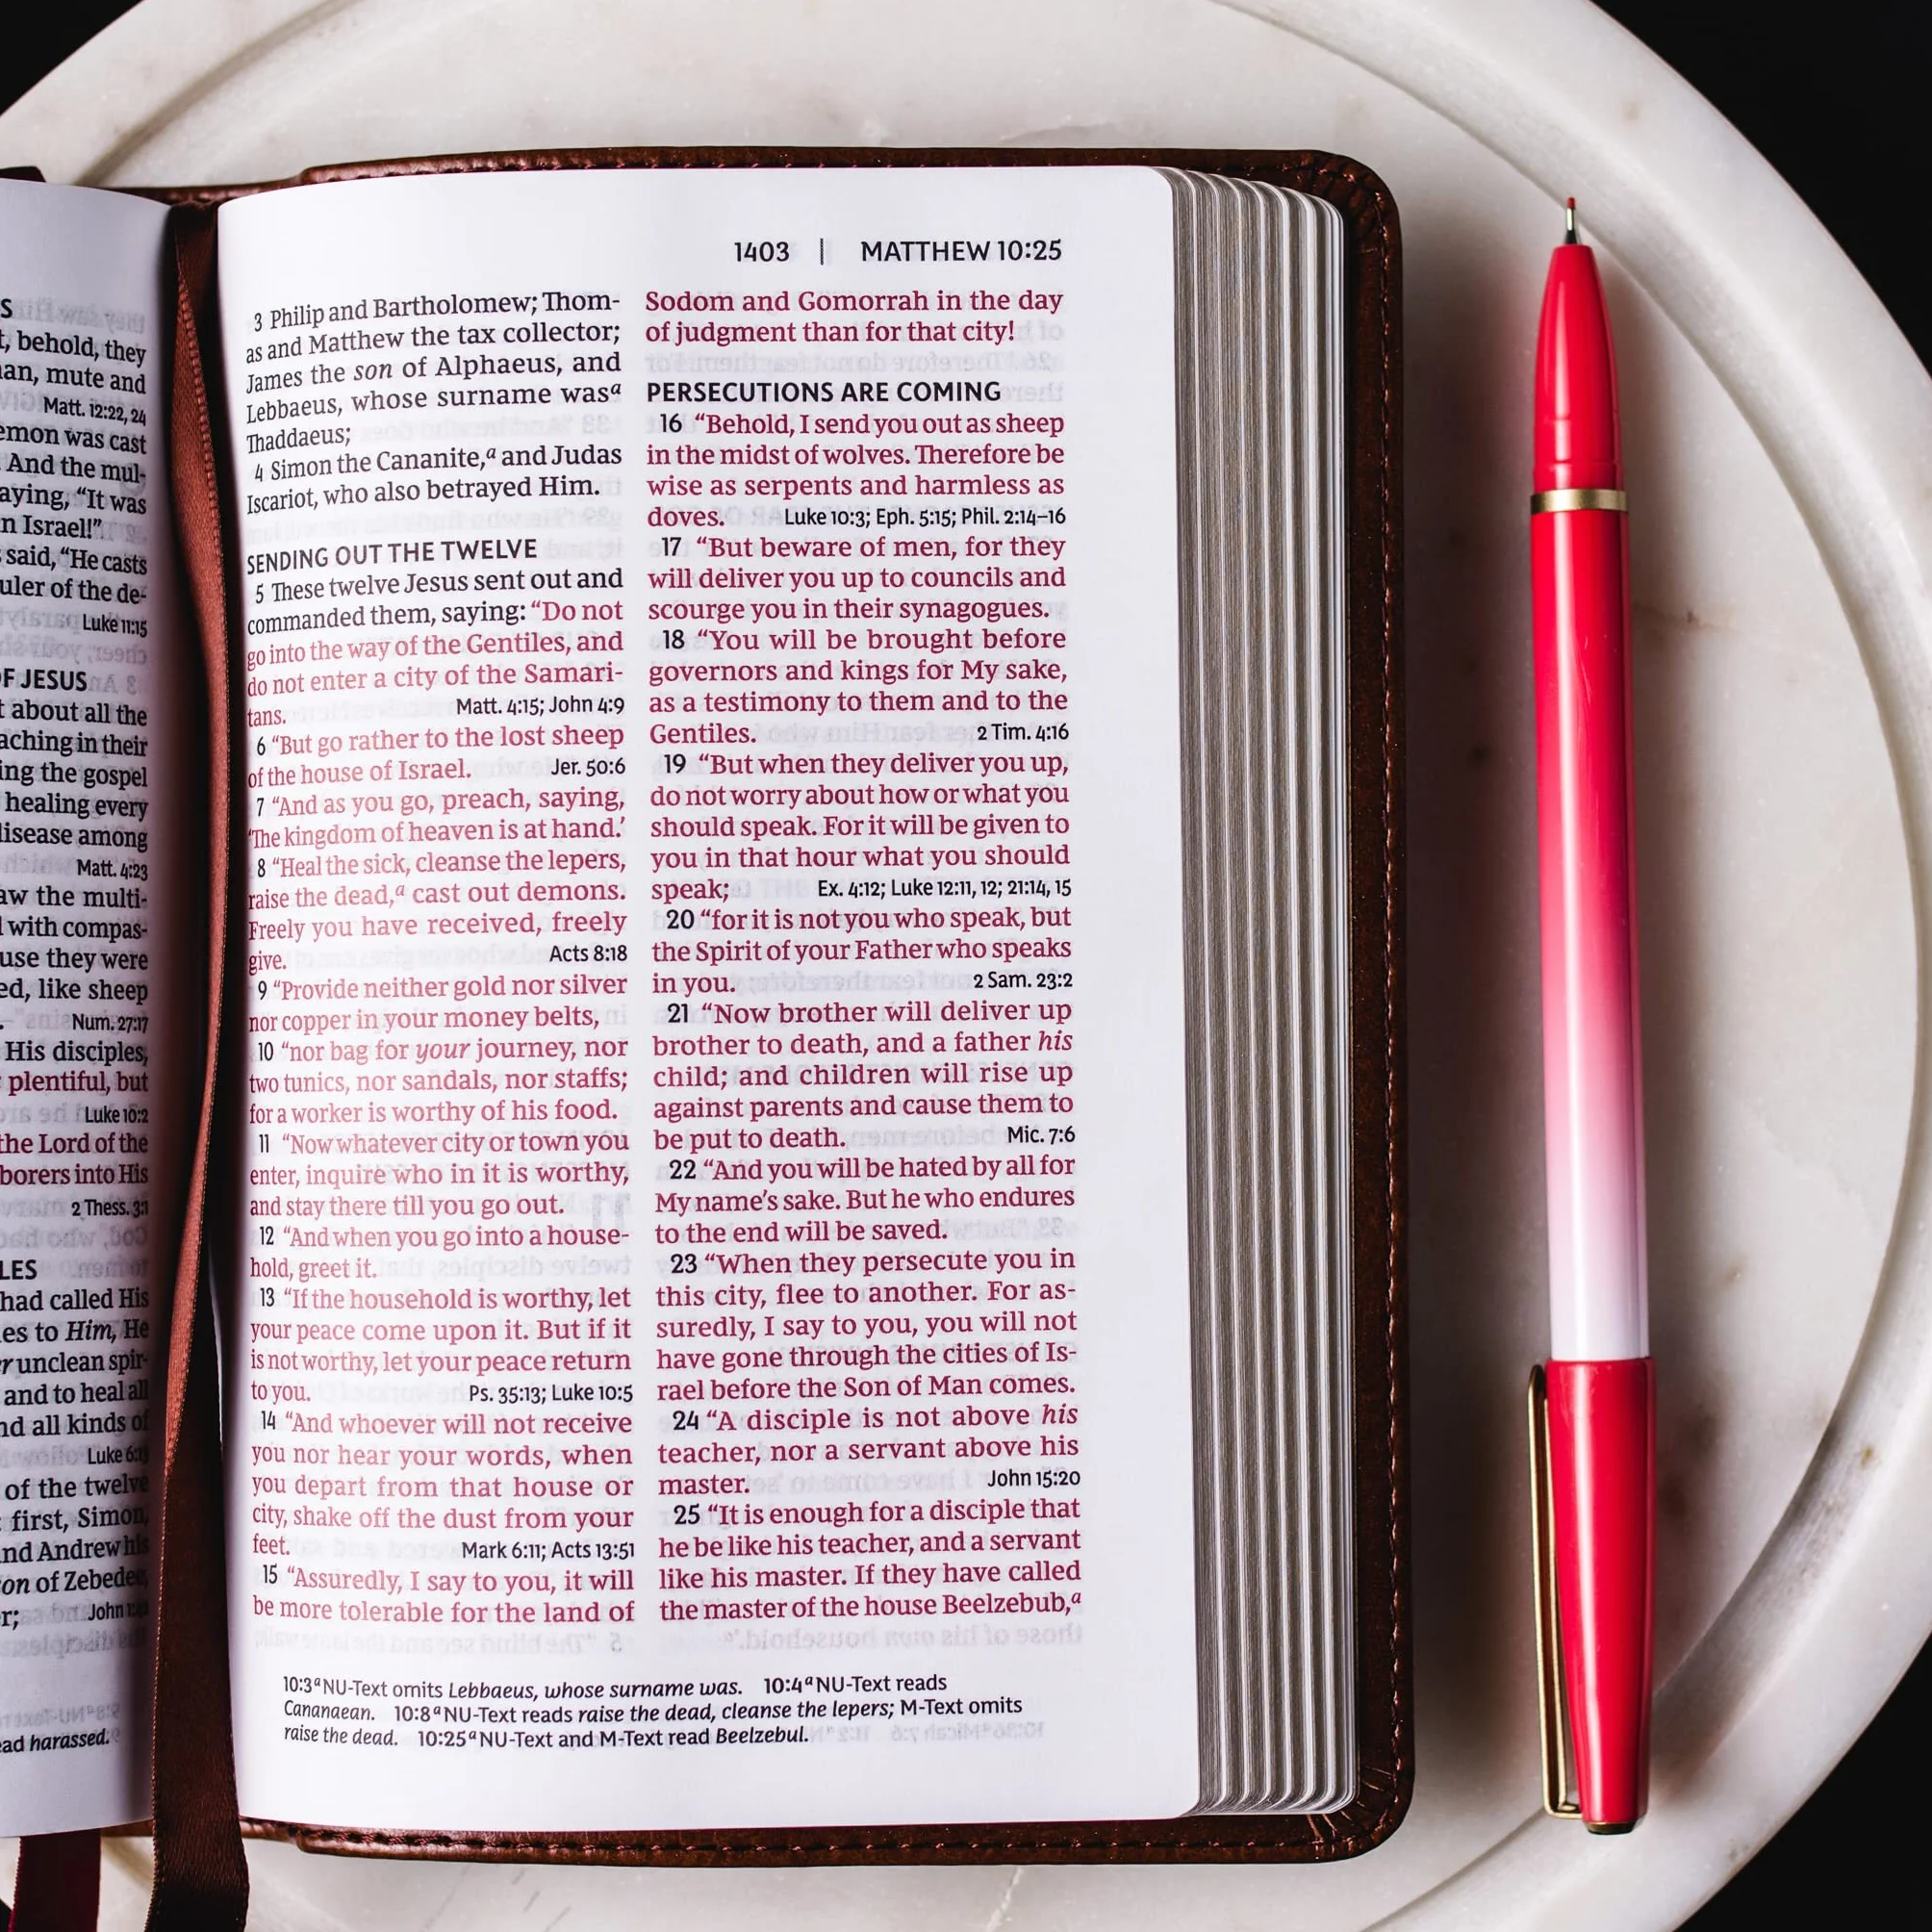 S
t, behold, they
an, mute and
Matt. 12:22, 24
emon was cast
And the mul-
aying, “It was
n Israel!”
said, “He casts
uler of the de-
Luke 11:15
OF JESUS
t about all the
aching in their
ing the gospel
healing every
disease among
Matt. 4:23
aw the multi-
with compas-
use they were
ed, like sheep
. Num. 27:17
His disciples,
plentiful, but
Luke 10:2
the Lord of the
borers into His
2 Thess. 3:1
LES
had called His
es to Him, He
r unclean spir-
and to heal all
nd all kinds of
Luke 6:13
of the twelve
first, Simon,
nd Andrew his
on of Zebedee,
r; John
ad harassed.
1403 | MATTHEW 10:25
3 Philip and Bartholomew; Thom-
as and Matthew the tax collector;
James the son of Alphaeus, and
Lebbaeus, whose surname wasᵃ
Thaddaeus;
4 Simon the Cananite,ᵃ and Judas
Iscariot, who also betrayed Him.
SENDING OUT THE TWELVE
5 These twelve Jesus sent out and
commanded them, saying: “Do not
go into the way of the Gentiles, and
do not enter a city of the Samari-
tans. Matt. 4:15; John 4:9
6 “But go rather to the lost sheep
of the house of Israel. Jer. 50:6
7 “And as you go, preach, saying,
‘The kingdom of heaven is at hand.’
8 “Heal the sick, cleanse the lepers,
raise the dead,ᵃ cast out demons.
Freely you have received, freely
give. Acts 8:18
9 “Provide neither gold nor silver
nor copper in your money belts,
10 “nor bag for your journey, nor
two tunics, nor sandals, nor staffs;
for a worker is worthy of his food.
11 “Now whatever city or town you
enter, inquire who in it is worthy,
and stay there till you go out.
12 “And when you go into a house-
hold, greet it.
13 “If the household is worthy, let
your peace come upon it. But if it
is not worthy, let your peace return
to you. Ps. 35:13; Luke 10:5
14 “And whoever will not receive
you nor hear your words, when
you depart from that house or
city, shake off the dust from your
feet. Mark 6:11; Acts 13:51
15 “Assuredly, I say to you, it will
be more tolerable for the land of
Sodom and Gomorrah in the day
of judgment than for that city!
PERSECUTIONS ARE COMING
16 “Behold, I send you out as sheep
in the midst of wolves. Therefore be
wise as serpents and harmless as
doves. Luke 10:3; Eph. 5:15; Phil. 2:14–16
17 “But beware of men, for they
will deliver you up to councils and
scourge you in their synagogues.
18 “You will be brought before
governors and kings for My sake,
as a testimony to them and to the
Gentiles. 2 Tim. 4:16
19 “But when they deliver you up,
do not worry about how or what you
should speak. For it will be given to
you in that hour what you should
speak; Ex. 4:12; Luke 12:11, 12; 21:14, 15
20 “for it is not you who speak, but
the Spirit of your Father who speaks
in you. 2 Sam. 23:2
21 “Now brother will deliver up
brother to death, and a father his
child; and children will rise up
against parents and cause them to
be put to death. Mic. 7:6
22 “And you will be hated by all for
My name’s sake. But he who endures
to the end will be saved.
23 “When they persecute you in
this city, flee to another. For as-
suredly, I say to you, you will not
have gone through the cities of Is-
rael before the Son of Man comes.
24 “A disciple is not above his
teacher, nor a servant above his
master. John 15:20
25 “It is enough for a disciple that
he be like his teacher, and a servant
like his master. If they have called
the master of the house Beelzebub,ᵃ
10:3ᵃ NU-Text omits Lebbaeus, whose surname was. 10:4ᵃ NU-Text reads
Cananaean. 10:8ᵃ NU-Text reads raise the dead, cleanse the lepers; M-Text omits
raise the dead. 10:25ᵃ NU-Text and M-Text read Beelzebul.